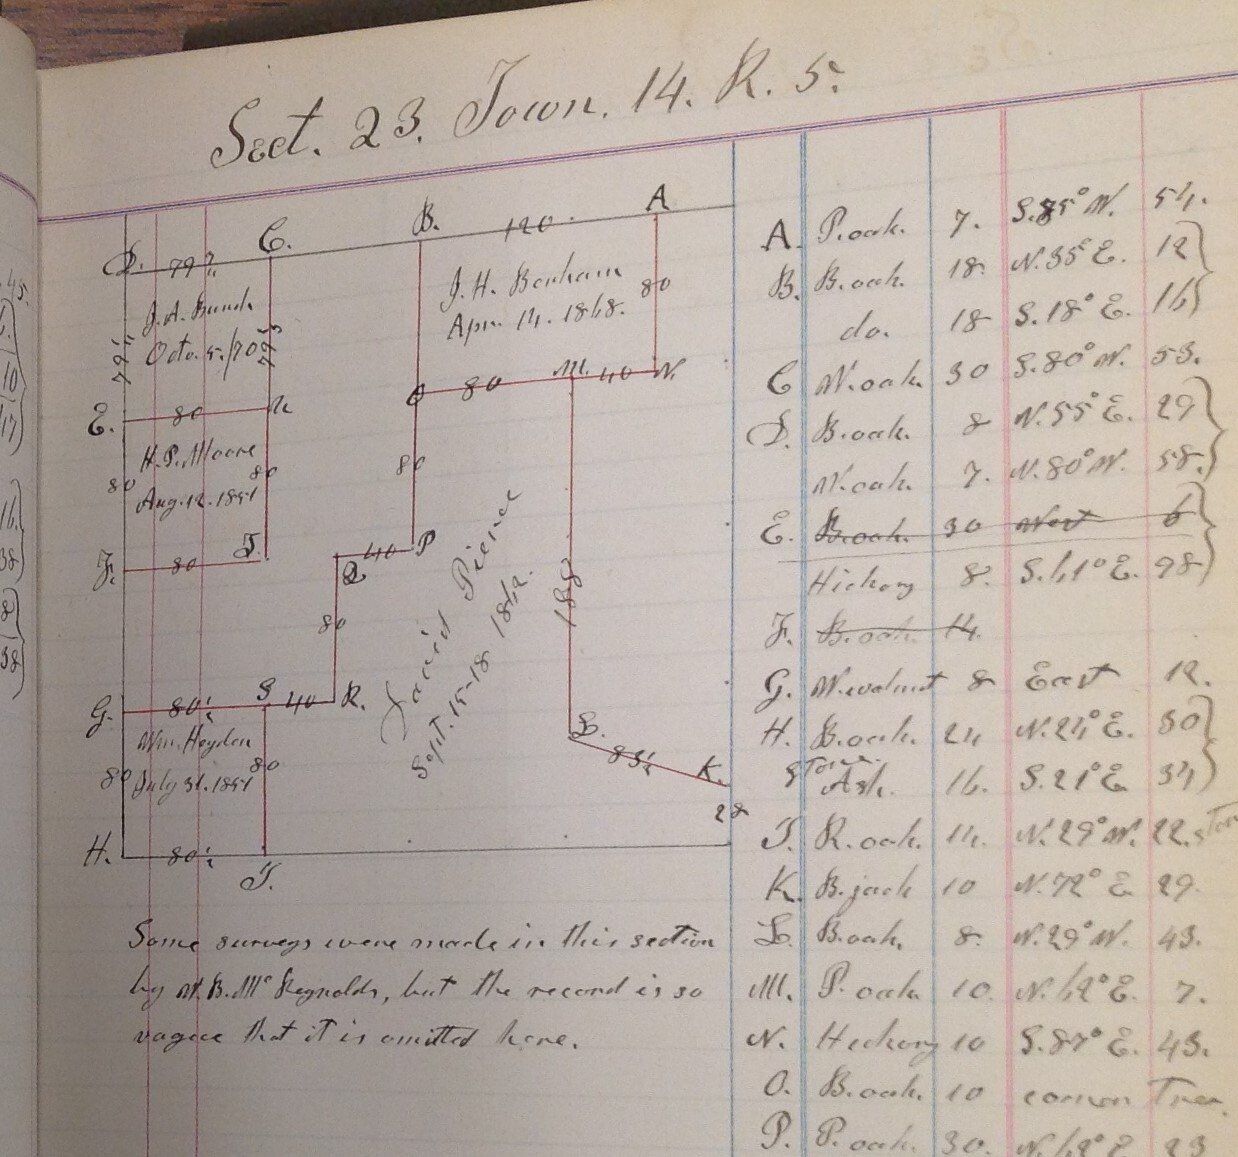 Sect. 23. Town. 14. R. 5.
D. 79½ C. B. 120 A
J. A. Bunch
Octo. 5. /70
79½
J. H. Benham
Apr. 14. 1868.
80
E. 80 U O 80 M. 40 N.
H. P. Moore
Aug. 12. 1851
80
80
80
F. 80 J. Q 40 P
80
David Pierce
Sept. 15-18. 1862.
188
G. 80½ S 40 R.
L. 83½ K.
28
Wm. Heyden
July 31. 1851
80
80
H. 80½ T.
Some surveys were made in this section
by W. B. Mc Reynolds, but the record is so
vague that it is omitted here.
A. P. oak. 7. S. 85° W. 54.
B. B. oak. 18 N. 35° E. 12
do. 18 S. 18° E. 16
C W. oak. 30 S. 80° W. 53.
D. B. oak. 8 N. 55° E. 29
W. oak. 7. N. 80° W. 58.
E. B. oak. 30 West 6
Hickory 8. S. 61° E. 98
F. B. oak 14.
G. W. walnut 8 East 12.
H. B. oak. 24 N. 24° E. 30
Stone
Ash. 16. S. 21° E. 34
J. R. oak. 14. N. 29° W. 22. Stone
K. B. jack 10 N. 72° E. 29.
L. B. oak. 8. N. 29° W. 43.
M. P. oak 10. N. 62° E. 7.
N. Hickory 10 S. 87° E. 43.
O. B. oak. 10 corner Tree.
P. P. oak. 30. N. 62° E 23